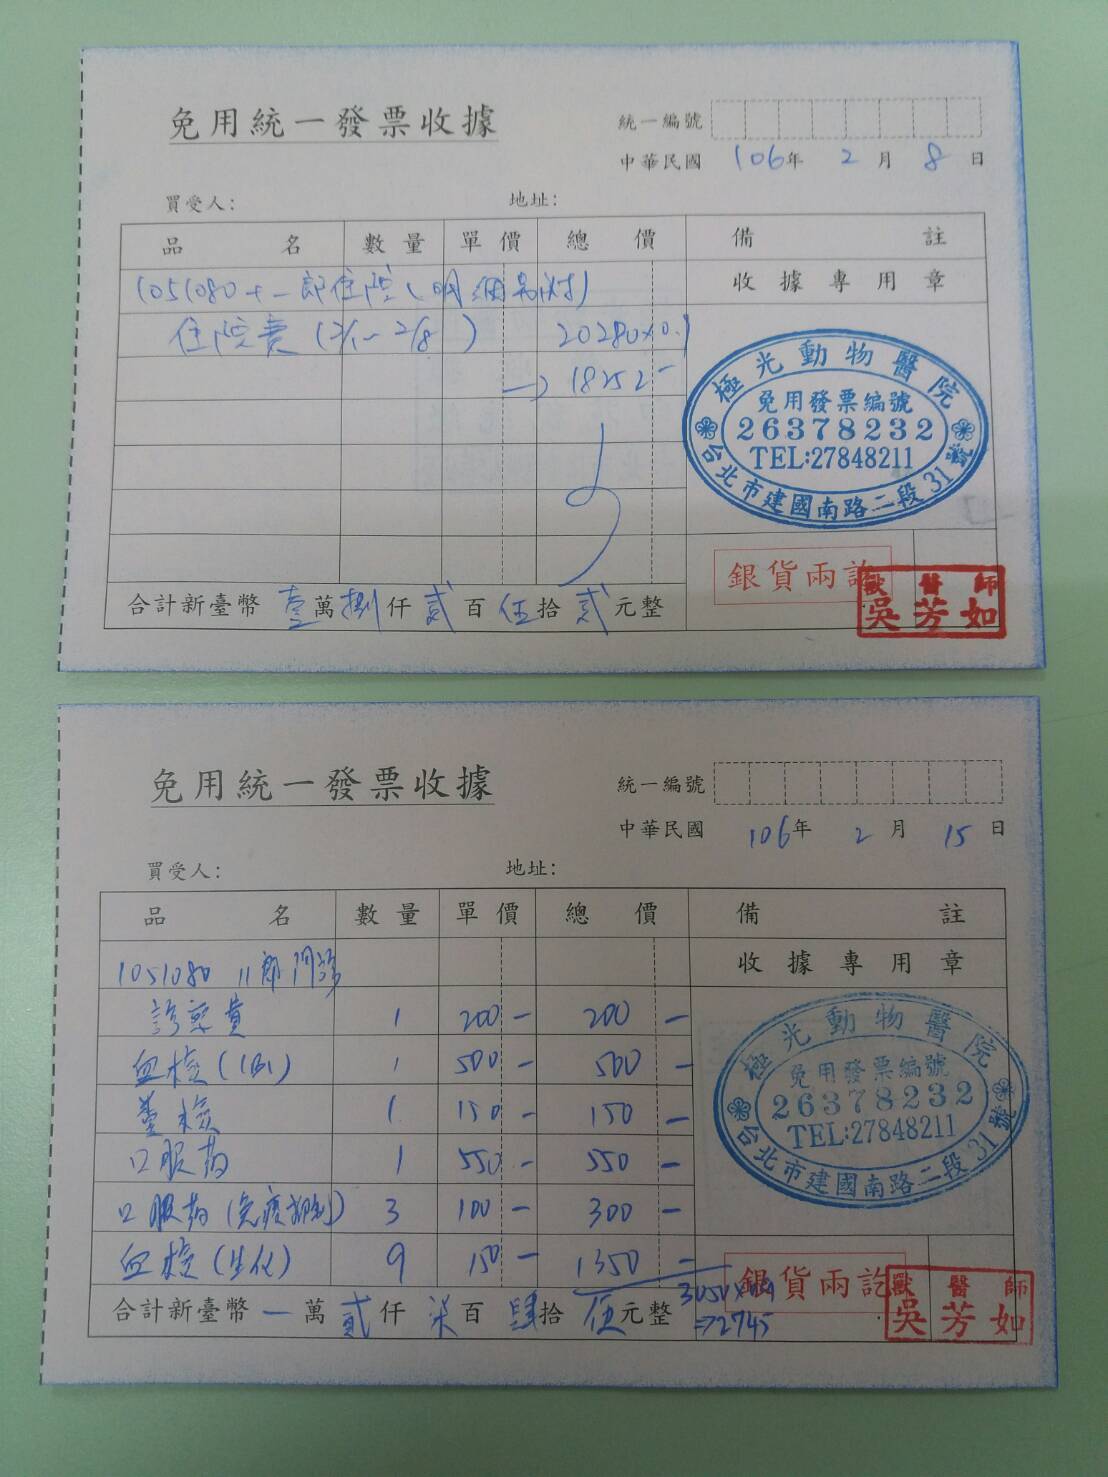 免用統一發票收據
統一編號
中華民國 106年 2月 8日
買受人: 地址:
品名 數量 單價 總價 備註
收據專用章
1051080 十一郎住院(明細另附)
住院費(2/1~2/8) 20280x0.9
→ 18252-
極光動物醫院
免用發票編號
26378232
TEL:27848211
台北市建國南路二段31號
銀貨兩訖
獸醫師
吳芳如
合計新臺幣 壹萬捌仟貳百伍拾貳元整
免用統一發票收據
統一編號
中華民國 106年 2月 15日
買受人: 地址:
品名 數量 單價 總價 備註
收據專用章
1051080 11郎門診
診察費 1 200- 200-
血檢(CBC) 1 500- 500-
1 150- 150-
口服藥 1 550- 550-
口服藥(免疫抑制) 3 100- 300-
血檢(生化) 9 150- 1350-
極光動物醫院
免用發票編號
26378232
TEL:27848211
台北市建國南路二段31號
3050x0.9
⇒2745
銀貨兩訖
獸醫師
吳芳如
合計新臺幣 一萬貳仟柒百肆拾伍元整